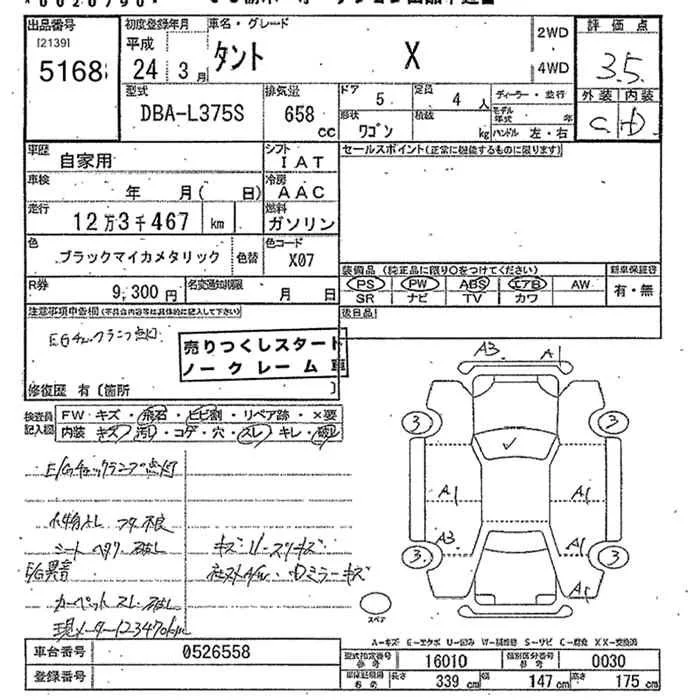 出品番号
[2139]
5168
初度登録年月
平成
24年3月
車名・グレード
タント X
2WD
4WD
評価点
3.5
外装 内装
C D
型式
DBA-L375S
排気量
658 cc
ドア
5
定員
4人
形状
ワゴン
積載
kg
ディーラー・並行
モデル年式 年
ハンドル 左・右
車歴
自家用
シフト
IAT
セールスポイント(正常に機能するものに限ります)
車検
年 月( 日)
冷房
AAC
走行
12万3千467 km
燃料
ガソリン
色
ブラックマイカメタリック
色替
色コード
X07
装備品(純正品に限り○をつけてください)
新車保証書
PS PW ABS エアB AW
有・無
SR ナビ TV カワ
R券
9,300円
名変通知期限
月 日
後日品
注意事項申告欄(不具合内容等は具体的に記入して下さい)
EGチェックランプ点灯
売りつくしスタート
ノークレーム車
修復歴 有〔箇所 〕
検査員記入欄
FW キズ・飛石・ヒビ割・リペア跡・×要
内装 キズ・汚れ・コゲ・穴・スレ・キレ・破れ
E/Gチェックランプ点灯
小物入レ フタ不良
シート ヘタリ
キズ・U・スリキズ
E/G異音
Dミラーキズ
カーペット スレ
現メーター123470km
A3 A1
3 3
A1 A1
A3 A1
3 3
A1
スペア
A-キズ E-エクボ U-凹み W-補修跡 S-サビ C-腐食 XX-交換済
車台番号
0526558
型式指定番号
参考
16010
類別区分番号
参考
0030
登録番号
車庫証明用
参考
長さ
339 cm
幅
147 cm
高さ
175 cm